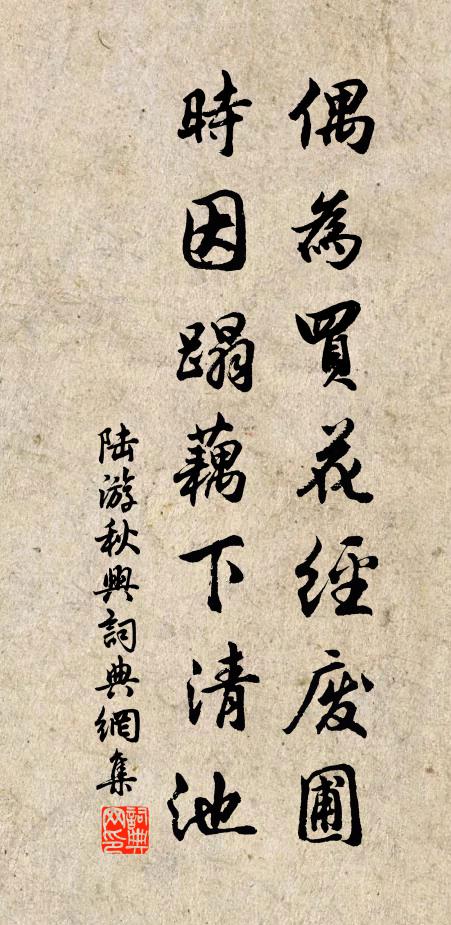 偶為買花經廢圃
時因蹋藕下清池
陸游秋興詞典網集
詞典網印